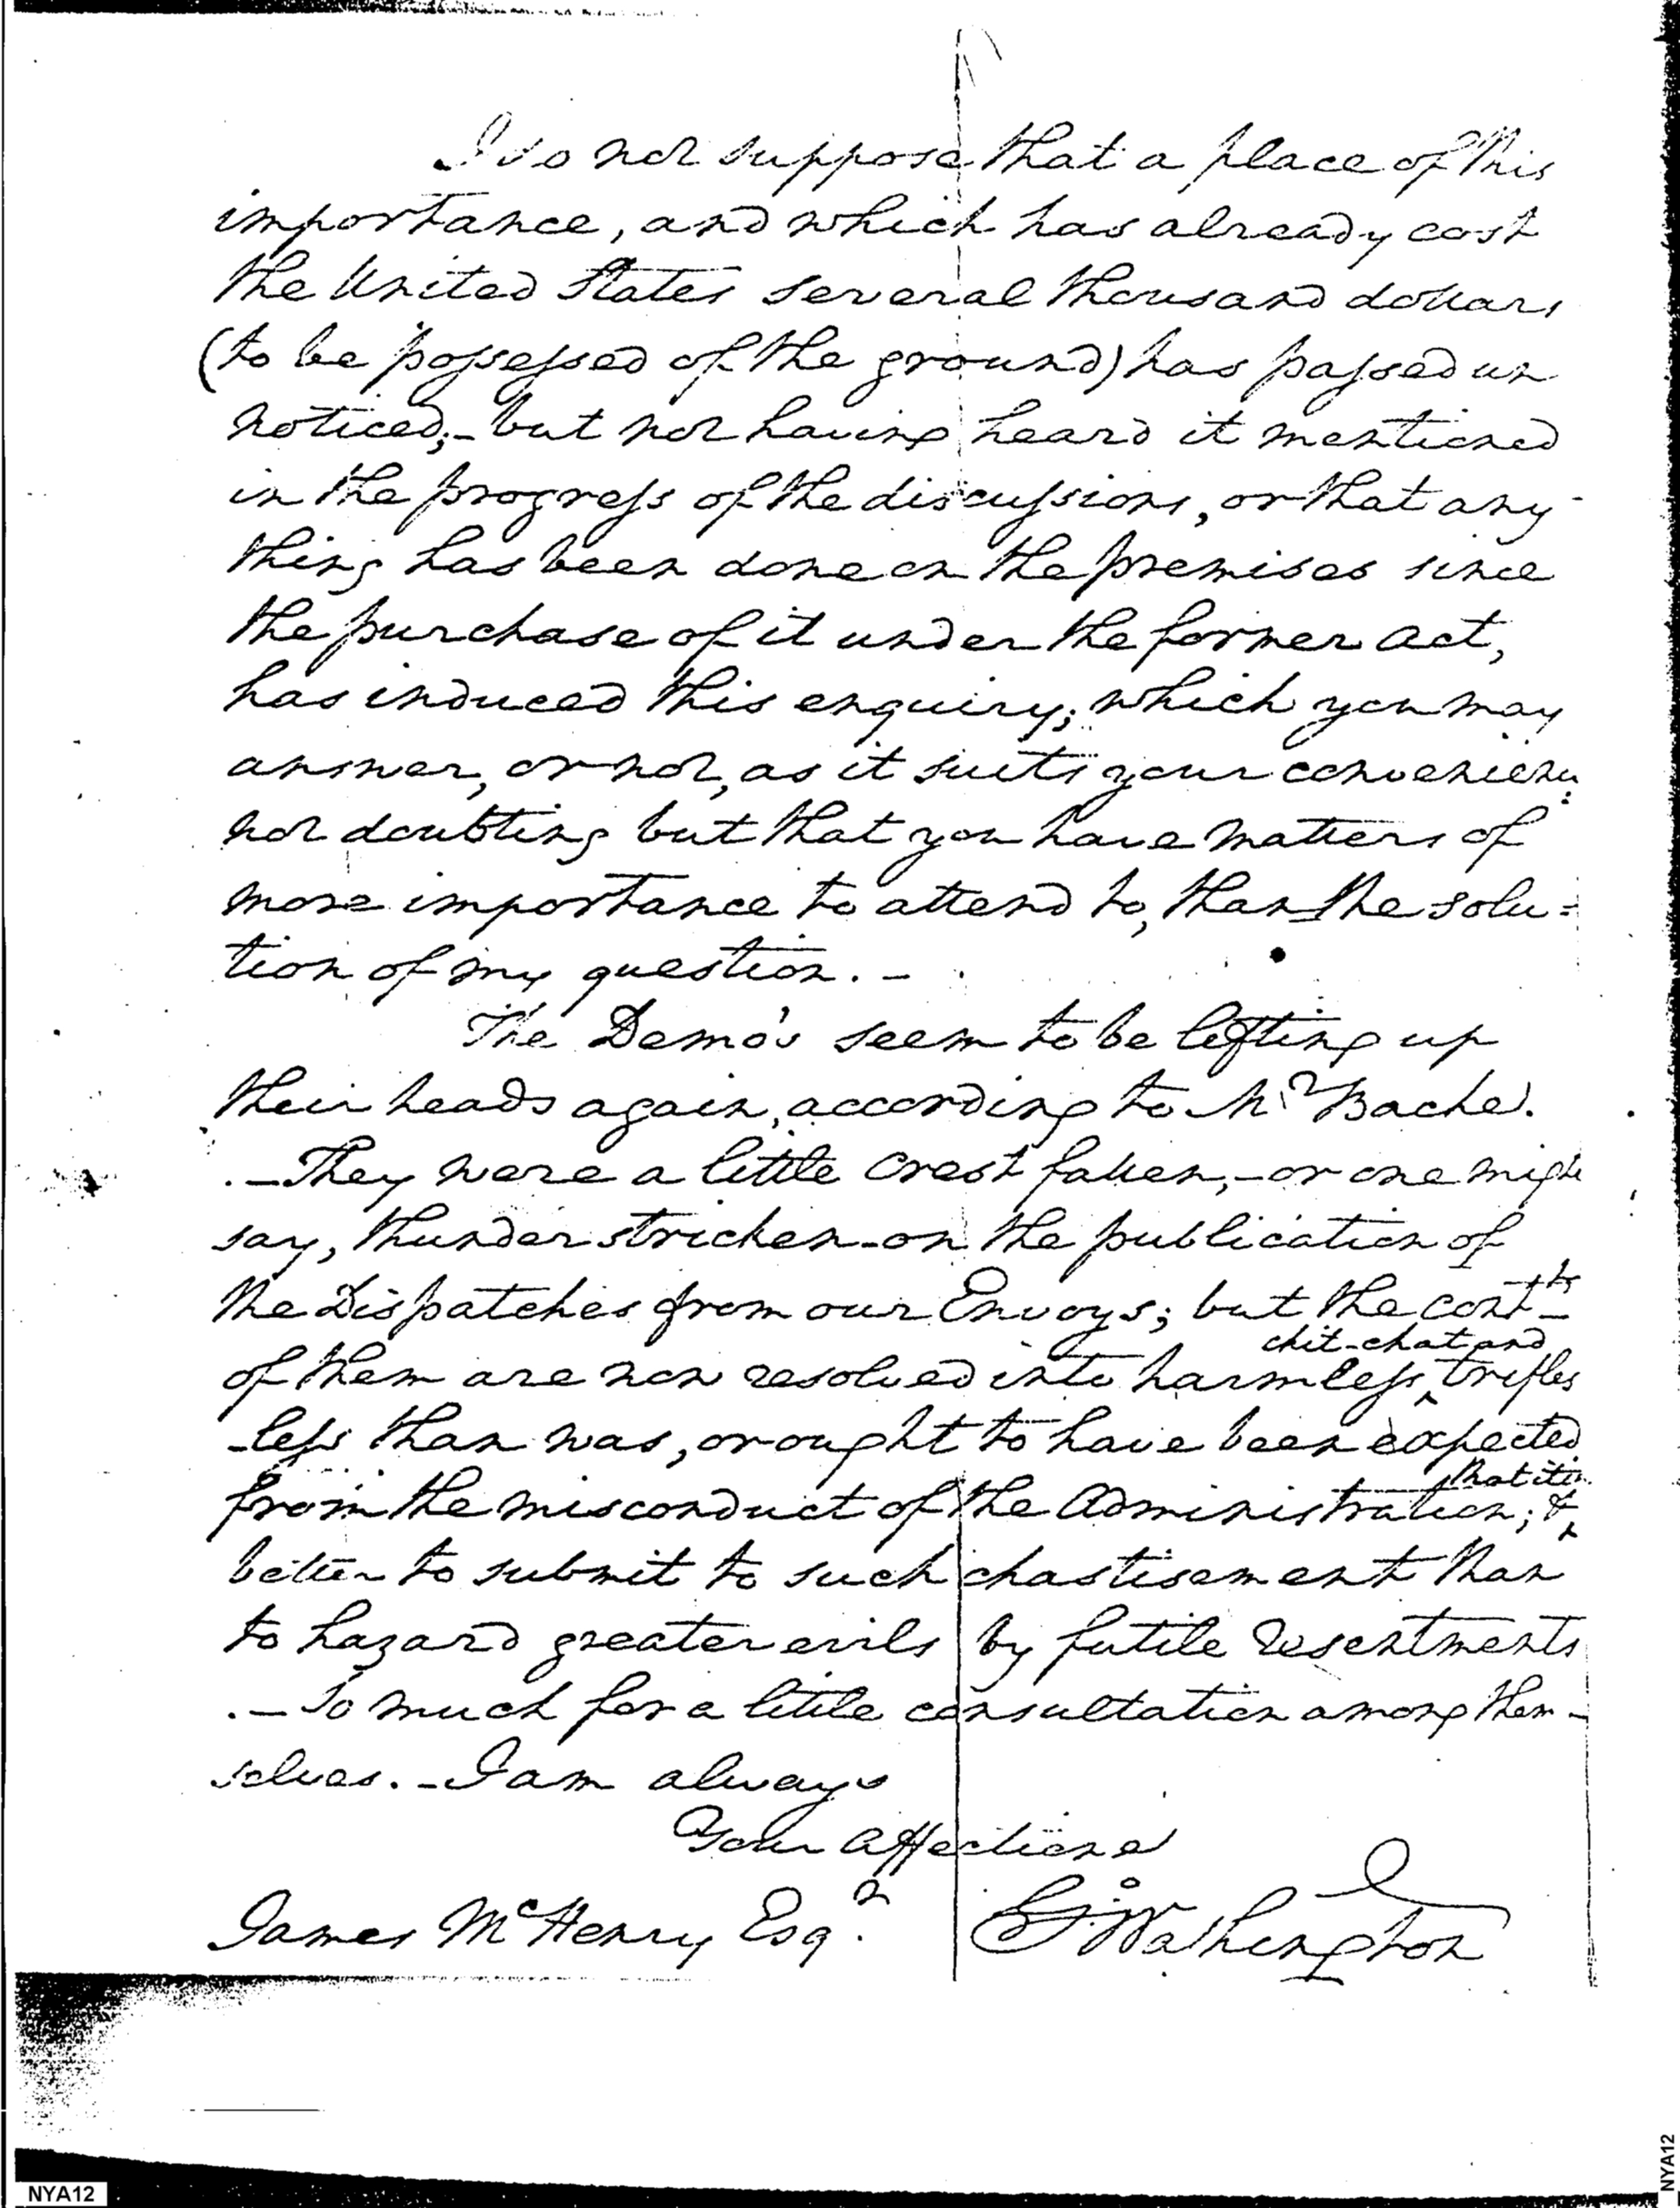 I do not suppose that a place of this
importance, and which has already cost
the United States several thousand dollars
(to be possessed of the ground) has passed un
noticed;– but not having heard it mentioned
in the progress of the discussions, or that any-
thing has been done on the premises since
the purchase of it under the former act,
has induced this enquiry; which you may
answer, or not, as it suits your convenience
not doubting but that you have matters of
more importance to attend to, than the solu=
tion of my question.–
The Demo's seem to be lifting up
their heads again, according to Mr Bache.
.–They were a little crest fallen,–or one might
say, thunder stricken–on the publication of
the Dispatches from our Envoys; but the contts
chit-chat and
of them are now resolved into harmless ‸ trifles
–less than was, or ought to have been expected
that it is
from the misconduct of the Administration; & ‸
better to submit to such chastisement than
to hazard greater evils by futile resentments
.–So much for a little consultation among them–
selves.–I am always
Your Affectione
James McHenry Esqr.
Go: Washington
NYA12
NYA12